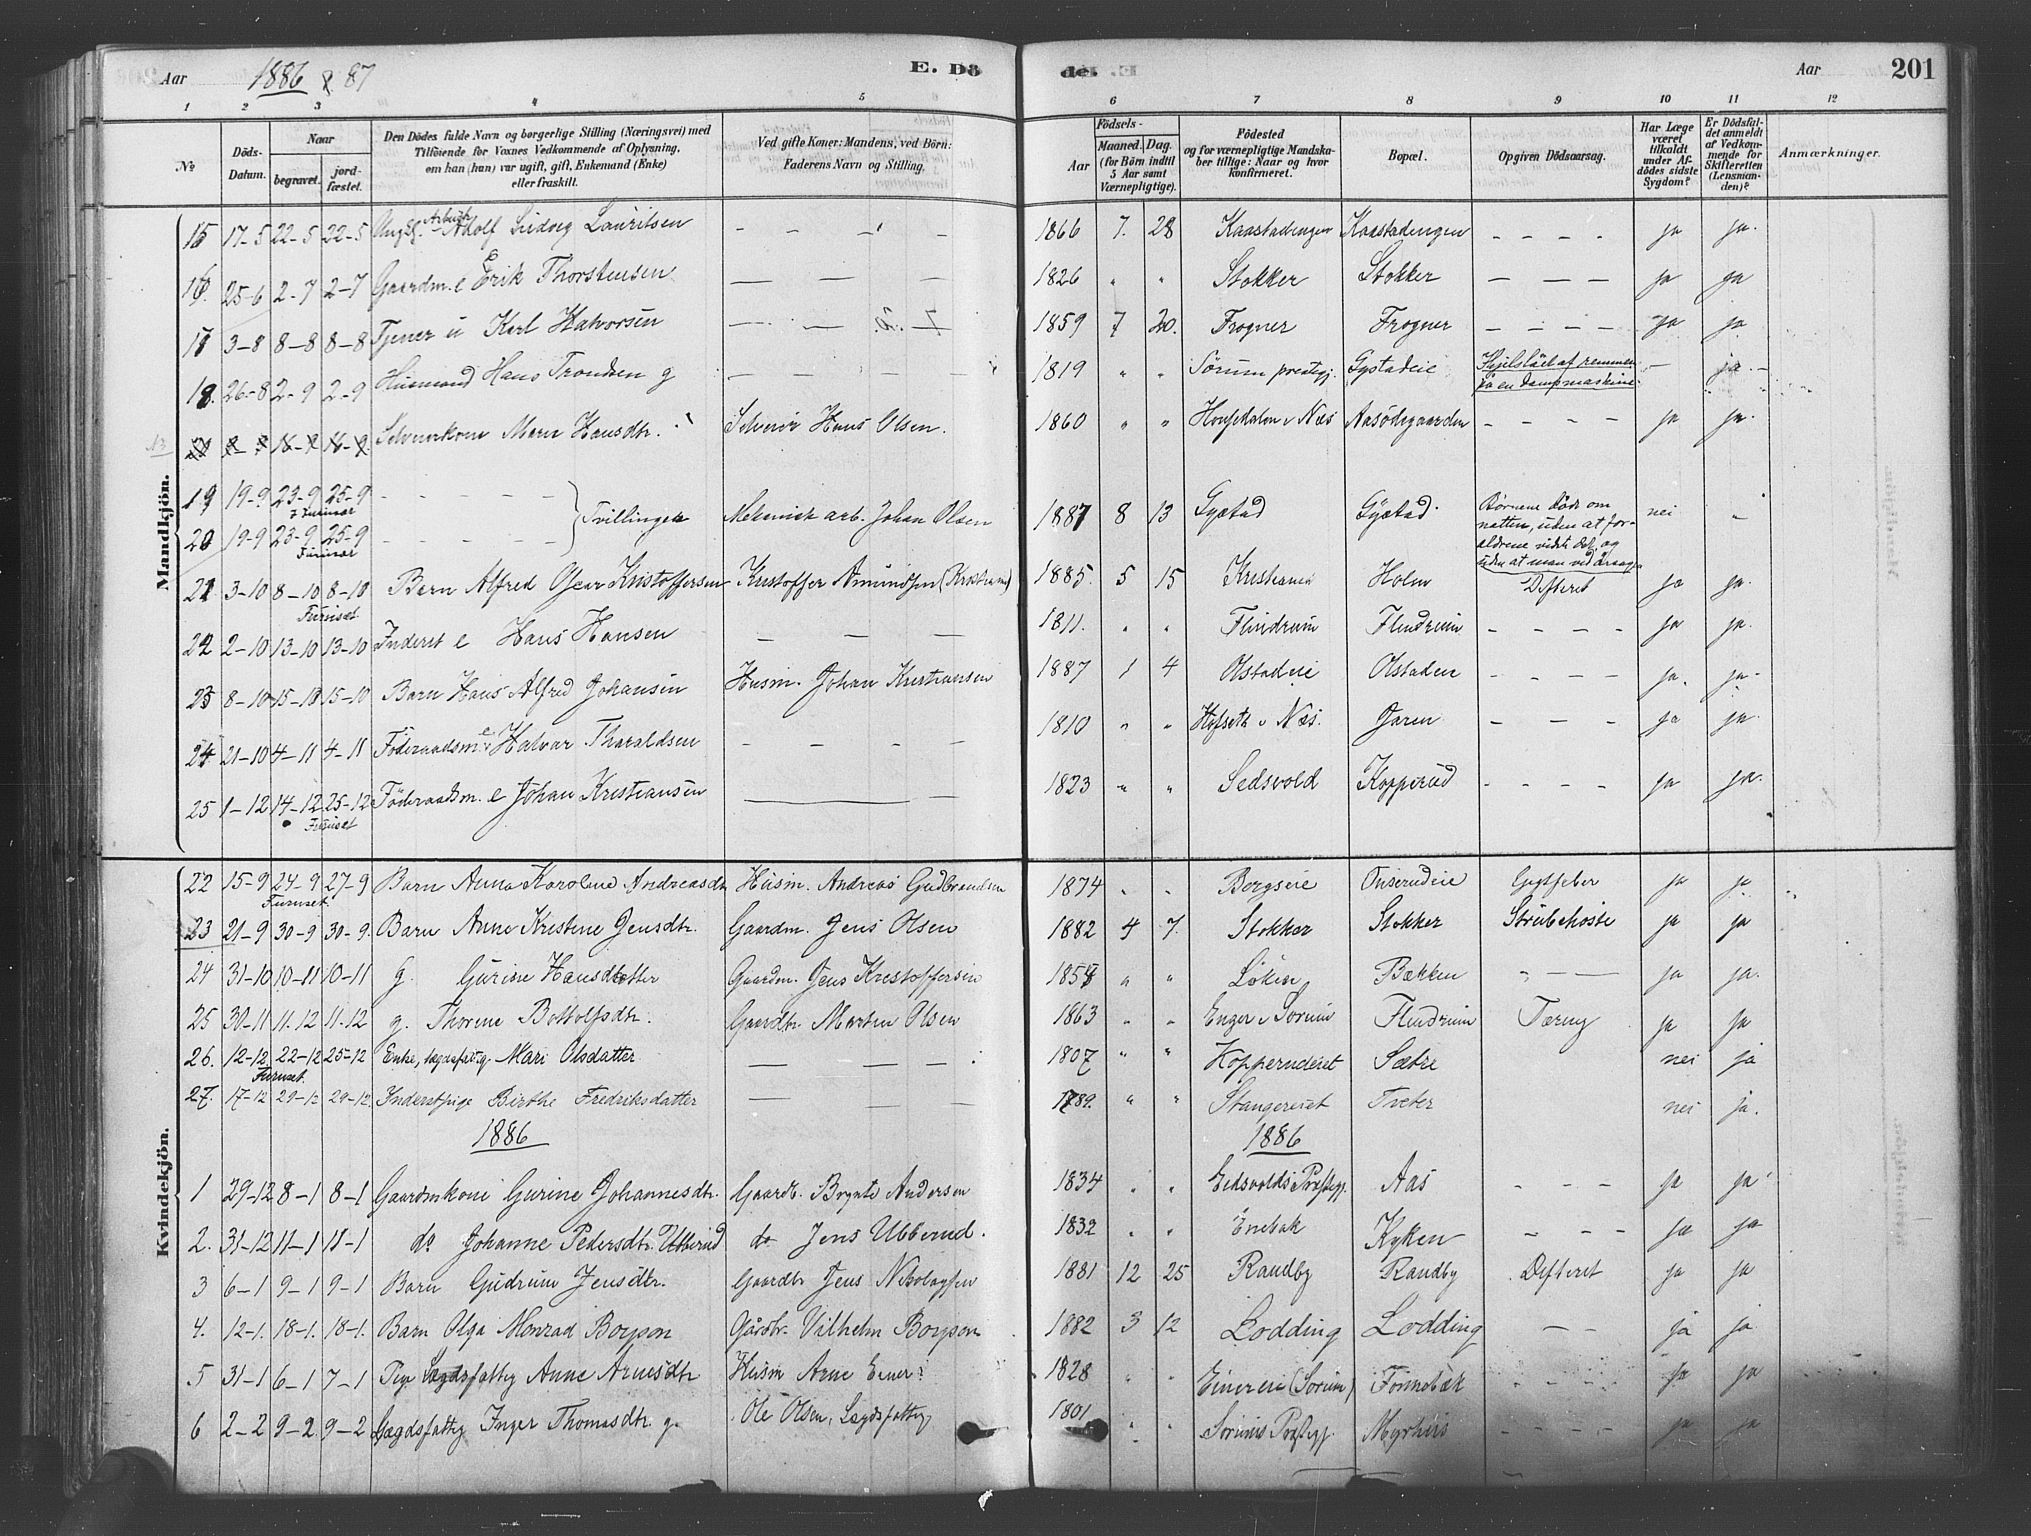 Aar 1886 & 87 E. Dö de. Aar 201
1 2 3 4 5 6 7 8 9 10 11 12
No Döds-Datum. Naar begravet. jordfæstet. Den Dödes fulde Navn og borgerlige Stilling (Næringsvei) med Tilföiende for Voxnes Vedkommende af Oplysning, om han (hun) var ugift, gift, Enkemand (Enke) eller fraskilt. Ved gifte Koner: Mandens, ved Börn: Faderens Navn og Stilling. Födsels- Aar Maaned. Dag. (for Börn indtil 5 Aar samt Værnepligtige). Födested og for værnepligtige Mandskaber tillige: Naar og hvor konfirmeret. Bopæl. Opgiven Dödsaarsag. Har Læge været tilkaldt under Afdödes sidste Sygdom? Er Dödsfaldet anmeldt af Vedkommende for Skifteretten (Lensmanden)? Anmærkninger.
Mandkjön.
15 17-5 22-5 22-5 Adolf Ludvig Lauritsen 1866 7. 28 Kaastadengen Kaastadengen ja ja.
16. 25-6 2-7 2-7 Gaardm. e Erik Thorstensen 1826 " " Stokker Stokker ja ja
17 3-8 8-8 8-8 Tjener u Karl Halvorsen 1859 7 20. Frogner Frogner ja ja
18 26-8 2-9 2-9 Husmand Hans Trondsen g 1819 " " Sørum prestegj. Gystadeie Ihjelslaaet af remmen paa en Dampmaskine. - ja
Selveierkone Maren Hansdtr. Selveier Hans Olsen. 1860 " " i Næs Aasødegaarden ja ja.
19 19-9 23-9 25-9 Furuset Tvillinger Mekanisk arb. Johan Olsen 1887 8 13 Gystad Gystad. Børnene døde om natten, uden at forældrene vidste det, og uden at man ved årsagen nei "
20 19-9 23-9 25-9 Furuset
21 3-10 8-10 8-10 Furuset Barn Alfred Oscar Kristoffersen Kristoffer Amundsen (Kristiania) 1885. 5 15 Kristiania Holm Difterit ja ja.
22 2-10 13-10 13-10 Inderst e Hans Hansen 1811. " " Flindrum Flindrum ja ja.
23 8-10 15-10 15-10 Barn Hans Alfred Johansen Husm. Johan Kristiansen 1887 1 4 Olstadeie Olstaden ja. ja.
24 21-10 4-11 4-11 Föderaadsm. e Halvor Tharaldsen 1810 " " Hofseth i Næs. Jaren ja ja.
25 1-12 14-12 25-12 Furuset Föderaadsm. e Johan Kristiansen 1823 " " Sedsvold Kopperud ja ja.
Kvindekjön.
22 15-9 24-9 27-9 Furuset. Barn Anna Karoline Andreasdt Husm. Andreas Gudbrandsen 1874 " " Borgseie Onserudeie Gigtfeber ja ja
23 21-9 30-9 30-9. Barn Anne Kristine Jensdtr. Gaardm. Jens Olsen 1882 4 7. Stokker Stokker Strubehoste ja ja
24 31-10 10-11 10-11 g. Gurine Hansdatter Gaardm. Jens Kristoffersen " " Løken Bækken ja ja.
25 30-11 11.12 11-12 g. Thorine Bottolfsdtr. Gaardbr. Martin Olsen 1863 " " Enger i Sørum Flindrum Tæring ja ja
26. 12-12 22-12 25-12 Furuset. Enke, lægdsfattig. Mari Olsdatter 1807 " " Kopperuderet Sætre nei ja
27. 17-12 29-12 29-12. Inderstpige Birthe Fredriksdatter 1789. " " Stangereiet Tveter nei ja.
1886 1886
1 29-12 8-1 8-1 Gaardmkone Gurine Johannesdtr. Gaardb. Brynte Andersen 1834 " " Eidsvolds Prestegj. Aas ja ja
2. 31-12 11-1 11-1 do Johanne Pedersdtr. Ubberud do Jens Ubberud. 1832 " " Enebak Kyken ja ja
3 6-1 9-1 9-1 Barn Gudrun Jensdtr. Gaardbr Jens Nikolaysen 1881 12 25 Randby Randby Difterit ja ja
4. 12-1. 18-1. 18-1. Barn Olga Monrad Boyson Gårdbr. Vilhelm Boyson 1882 3 12 Lodding Lodding ja ja
5 31-1 6-1 7-1 Pige Lægdsfattig Anne Arnesdtr Husm Arne Einer 1828 " " Einereie (Sørum) Fonnebæk ja ja
6 2-2 9-2 9-2 Lægdsfattig Inger Thomasdtr. g. Ole Olsen, Lægdsfattig 1801 " " Sørums Prestegj. Myrhus ja ja